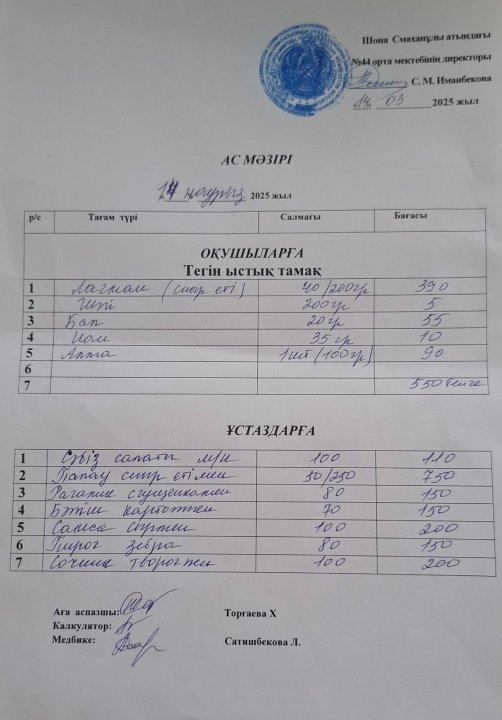 Шона Смаханұлы атындағы
№44 орта мектебінің директоры
С. М. Иманбекова
"14" 03 2025 жыл
АС МӘЗІРІ
14 наурыз 2025 жыл
р/с Тағам түрі Салмағы Бағасы
ОҚУШЫЛАРҒА
Тегін ыстық тамақ
1 Лагман (сиыр еті) 40/200гр 390
2 Шәй 200гр 5
3 20гр 55
4 Нан 35 гр 10
5 Алма 1шт (100гр) 90
6
7 550 тенге
ҰСТАЗДАРҒА
1 Сәбіз салаты м/н 100 110
2 Палау сиыр етімен 50/250 750
3 Рогалик сгущенкамен 80 150
4 Бәтіш картоппен 70 150
5 Самса 100 200
6 Пирог зебра 80 150
7 Сочник творогпен 100 200
Аға аспазшы: Торғаева Х
Калкулятор:
Медбике: Сатишбекова Л.